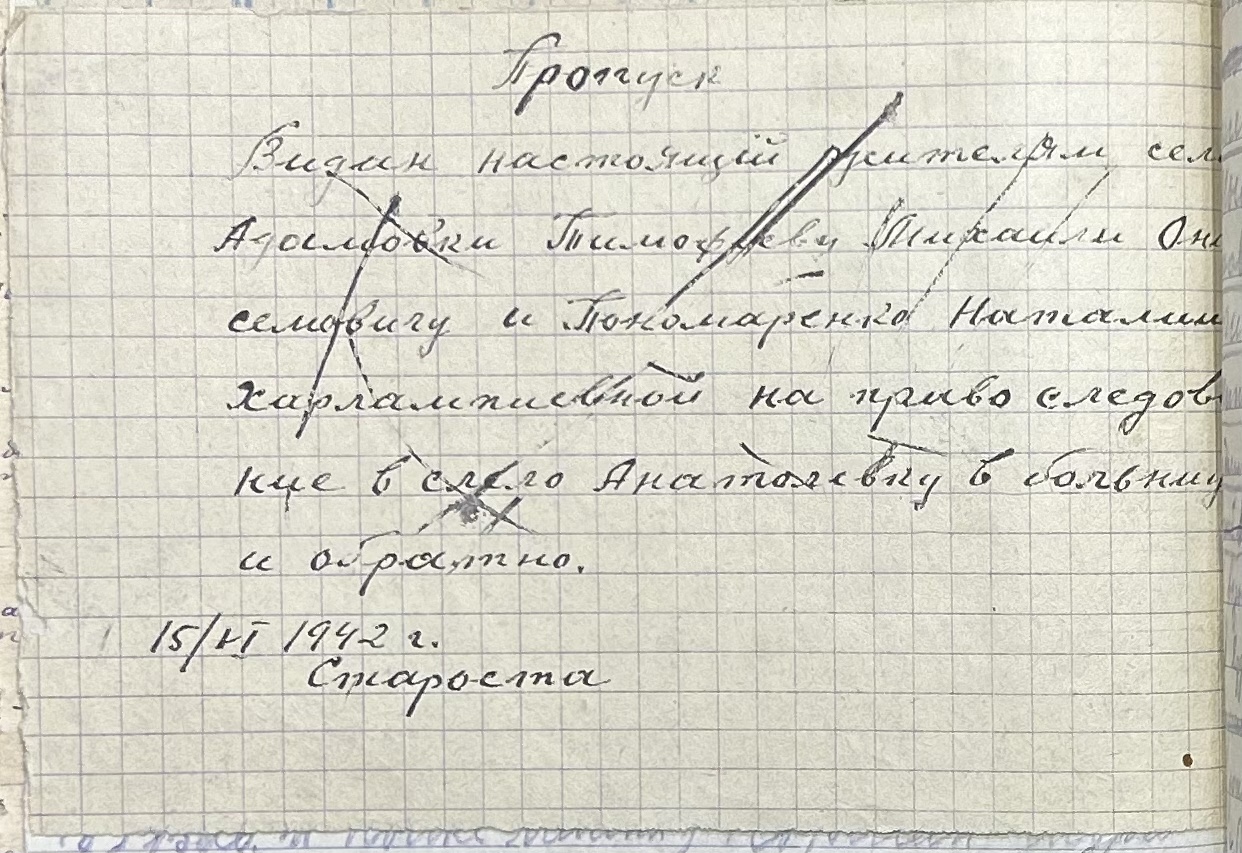 Пропуск
Видан настоящій жителям сел
Адамовки Тимофееву Михаилу Они
семовичу и Пономаренко Наталии
Харлампиевной на право следов
ние в село Анатолевку в больниц
и обратно.
15/VI 1942 г.
Староста